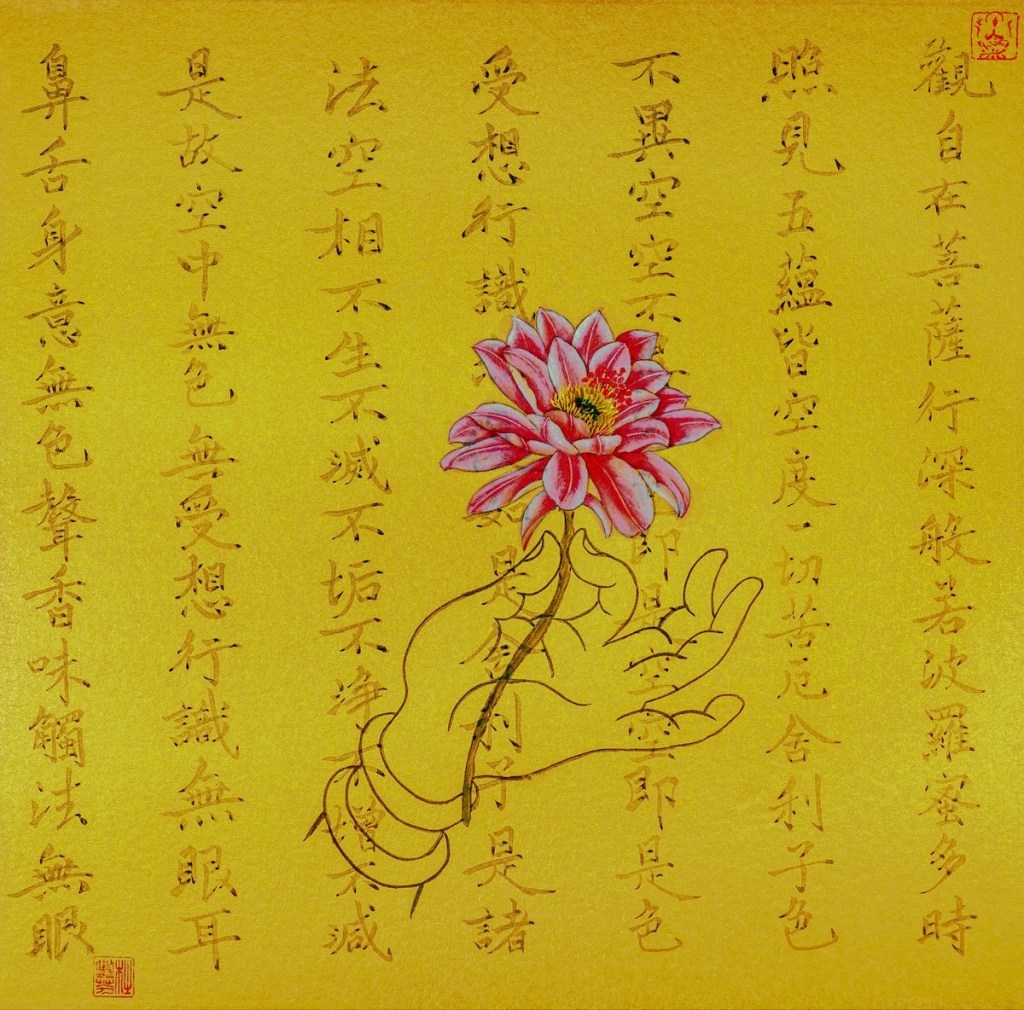 觀自在菩薩行深般若波羅蜜多時
照見五蘊皆空度一切苦厄舍利子色
不異空空不即是空空即是色
受想行識如是舍利子是諸
法空相不生不滅不垢不淨不增不減
是故空中無色無受想行識無眼耳
鼻舌身意無色聲香味觸法無眼